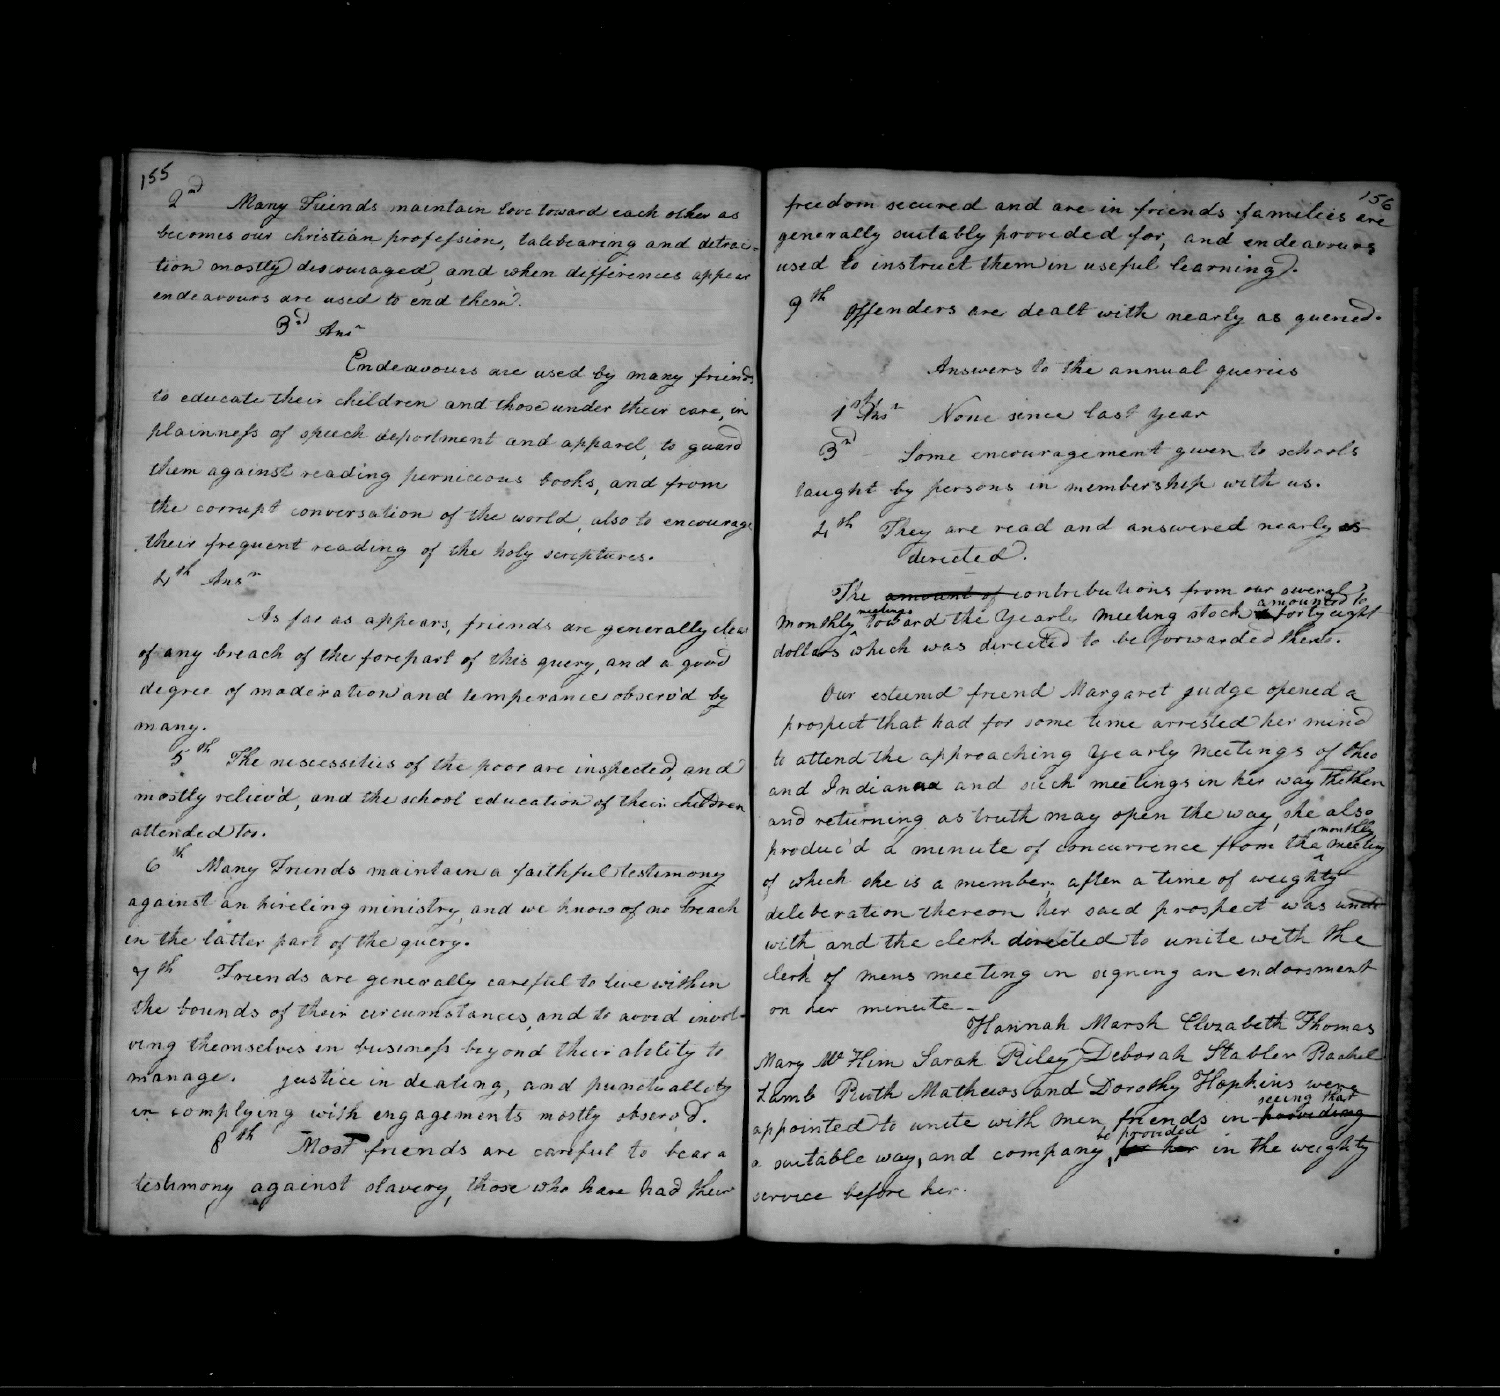 155
2nd Many Friends maintain love toward each other as
becomes our christian profession, talebearing and detrac-
tion mostly discouraged, and when differences appear
endeavours are used to end them.
3d Ansr
Endeavours are used by many friends
to educate their children and those under their care, in
plainness of speech deportment and apparel, to guard
them against reading pernicious books, and from
the corrupt conversation of the world, also to encourage
their frequent reading of the holy scriptures.
4th Ansr
As far as appears, friends are generally clear
of any breach of the forepart of this query, and a good
degree of moderation and temperance observ'd by
many.
5th The necessities of the poor are inspected, and
mostly reliev'd, and the school education of their children
attended too.
6th Many Friends maintain a faithful testimony
against an hireling ministry, and we know of no breach
in the latter part of the query.
7th Friends are generally careful to live within
the bounds of their circumstances, and to avoid invol-
ving themselves in business beyond their ability to
manage. justice in dealing, and punctuallity
in complying with engagements mostly observ'd.
8th Most friends are careful to bear a
testimony against slavery, those who have had their
156
freedom secured and are in friends families are
generally suitably provided for, and endeavours
used to instruct them in useful learning.
9th Offenders are dealt with nearly as queried.
Answers to the annual queries
1st Ansr None since last year
3d Some encouragement given to schools
taught by persons in membership with us.
4th They are read and answered nearly as
directed.
The amount of contributions from our several
monthly meetings toward the Yearly Meeting stock amounted to forty eight
dollars which was directed to be forwarded there.
Our esteemd friend Margaret Judge opened a
prospect that had for some time arrested her mind
to attend the approaching Yearly Meetings of Ohio
and Indiana and such meetings in her way thither
and returning as truth may open the way, she also
produc'd a minute of concurrence from the monthly meeting
of which she is a member, after a time of weighty
deliberation thereon her said prospect was united
with, and the clerk directed to unite with the
clerk of mens meeting in signing an endorsment
on her minute -
Hannah Marsh Elizabeth Thomas
Mary McKim Sarah Riley Deborah Stabler Rachel
Lamb Ruth Mathews and Dorothy Hopkins were
appointed to unite with men friends in providing seeing that
a suitable way, and company, for her be provided in the weighty
service before her.